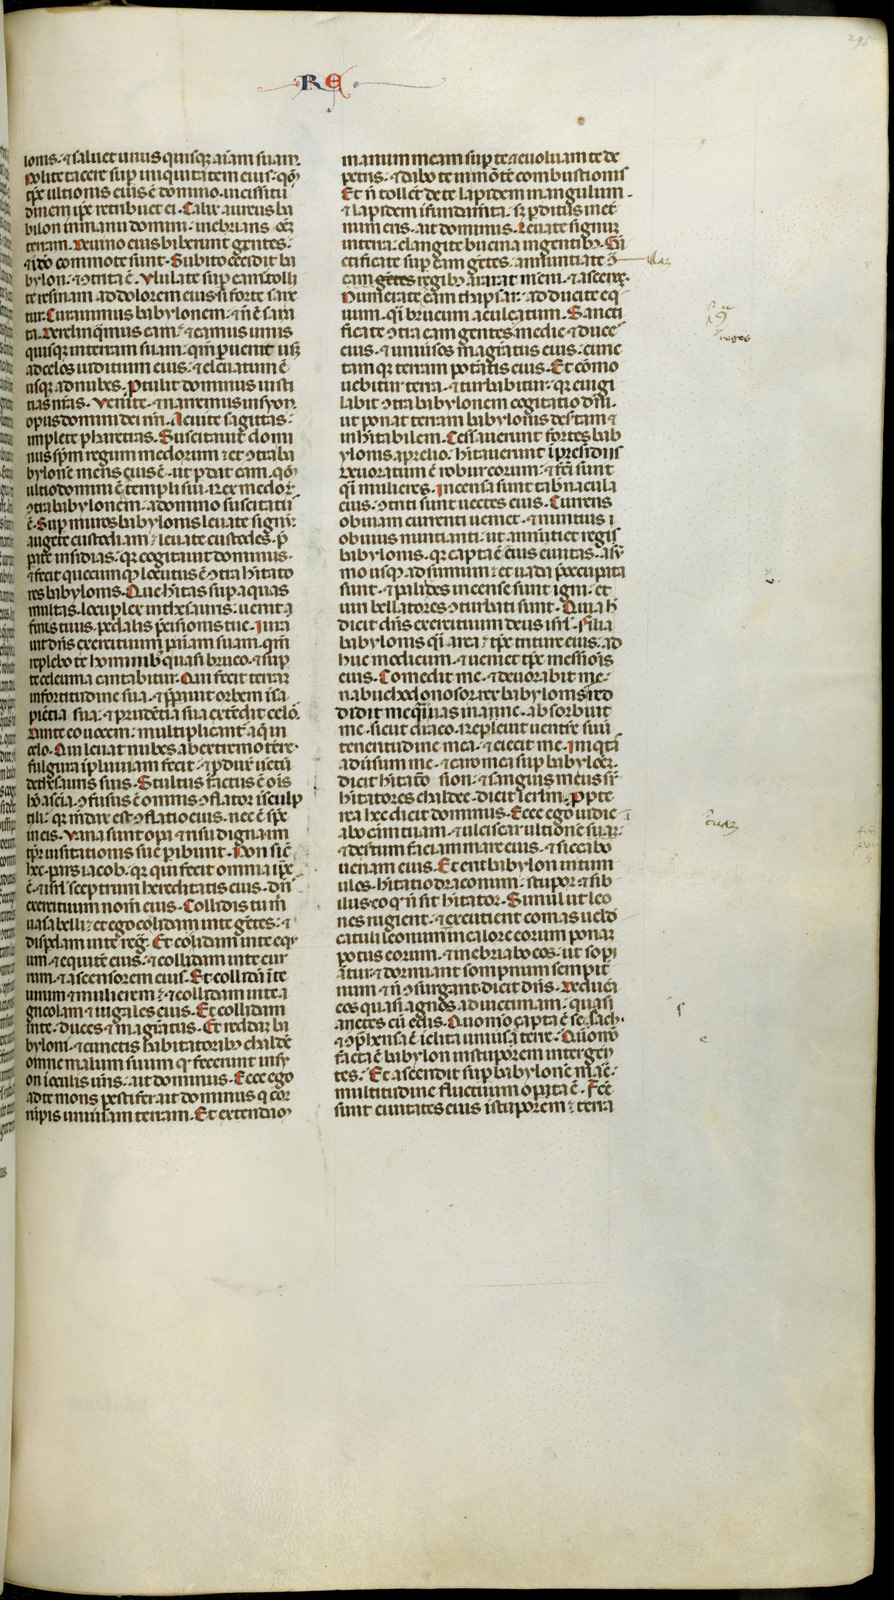 295
RE
lonis· et saluet unus quisqꝫ aiam suam·
Nolite tacere sup iniquitatem eius· qm̄
tp̄s ultionis eius ē domino· uicissitu
dinem ip̄e retribuet ei· Calix aureus ba
bilon in manu domini· inebrians oēꝫ
terram· De uino eius biberunt gentes·
et iō commote sunt· Subito cecidit ba
bylon· et ꝯtrita ē· Vlulate sup eam· tolli
te resinam ad dolorem eius si forte sane
tur· Curauimus babylonem· et n̄ ē sana
ta· Derelinqͥmus eam· et eamus unus
quisqꝫ in terram suam· qm̄ ꝑuenit usqꝫ
ad celos iuditium eius· et eleuatum ē
usqꝫ ad nubes· Ptulit dominus iusti
tias nr̄as· Venite· et narremus in syon
opus domini dei nr̄i· Acuite sagittas·
implete pharetras· Suscitauit domi
nus sp̄m regum medorum· et ꝯtra ba
bylonē mens eius ē· ut ꝑdat eam· qm̄
ultio domini ē templi sui· rex medoꝝ
ꝯtra babylonem· a domino suscitatus
ē· Sup muros babylonis leuate signū·
augete custodiam· leuate custodes· p̄
parate insidias· qꝛ cogitauit dominus·
et fecit quecumqꝫ locutus ē ꝯtra hitato
res babylonis· Que hitas sup aquas
multas· locuplex in thesauris· uenit
finis tuus· pedalis p̄cisionis tue· Iura
uit dn̄s exercituum ꝑ aīam suam· qm̄
replebo te hominibꝰ quasi bruco· et sup
te celeuma cantabitur· Qui fecit terram
in fortitudine sua· et p̄parauit orbem in sa
pientia sua· et prudētia sua extēdit celos·
Dante eo uocem· multiplicant̄ aque in
celo· Qui leuat nubes ab extremo terre·
fulgura in pluuiam fecit· et ꝓduxit uentū
de thesauris suis· Stultus factus ē oīs
hō a scīa· ꝯfusus ē omnis ꝯflator in sculp
tili· qꝛ mendax est ꝯflatio eius· nec ē sps
in eis· Vana sunt opa et risu digna· in
tp̄r uisitationis sue ꝑibunt· Non sic
hec pars iacob· qꝛ qui fecit omnia ip̄e
ē· et isrl̄ sceptrum hereditatis eius· dn̄s
exercituum nom̄ eius· Collidis tu mͥ
uasa belli· et ego colidam in te gētes· et
disꝑdam in te regna· Et colidam in te equ
um· et equitē eius· et collidam in te cur
rum· et ascensorem eius· Et collidā in te
uirum et mulierem· et collidam in te a
gricolam et iugales eius· Et collidam
in te· duces et magratus· Et reddam ba
byloni· et cunctis habitatoribꝰ chaldee
omne malum suum qꝫ fecerunt in sy
on in oculis uris· ait dominus· Ecce ego
ad te mons pestifer· ait dominus q cor
rumpis uniuersam terram· Et extendam
manum meam sup te et euoluam te de
petris· et dabo te in montē combustionis·
Et n̄ tollēt de te lapidem in angulum·
et lapidem in fundamta· sꝫ ꝑditus inet̄
num eris· ait dominus· Leuate signū
in terra· clangite bucina in gentibꝰ· Sā
ctificate sup eam gētes· annuntiate ꝯ
eam gētes regibꝰ ararat meni· et ascenez·
Numerate ꝯtra eam thapsar· adducite eq
uum· qͥ brucum aculeatum· Sancti
ficate ꝯtra eam gentes medie· et duces
eius· et uniuersos magratus eius· cunc
tamqꝫ terram potatis eius· Et cōmo
uebitur terra· et turbabitur· qꝛ euigi
labit ꝯtra babylonem cogitatio dn̄i·
ut ponat terram babylonis desertam et
inhitabilem· Cessauerunt fortes bab
ylonis a prelio· hitauerunt in presidiis
Deuoratum ē robur eorum· et fc̄i sunt
qͥ mulieres· Incensa sunt tabnacula
eius· ꝯtriti sunt uectes eius· Currens
obuiam currenti ueniet· et nuntius
obuius nuntianti· ut annūtiet regi
babylonis· qꝛ capta ē eius ciuitas· a sū
mo usqꝫ ad sumum· et uada p̄occupata
sunt· et palides incense sunt igni· et
uiri bellatores ꝯturbati sunt· Quia h̄
dicit dn̄s exercituum deus isrl̄· Filia
babylonis qͥ area· tp̄s triture eius· ad
huc modicum· et ueniet tp̄s messionis
eius· Comedit me· et deuorabit me·
nabuchodonosor rex babylonis red
didit me qͥ uas inanne· absorbuit
me· sicut draco· repleuit uentrē suū
teneritudine mea· et eiecit me· Iniqtas
aduersum me· et caro mea sup babylonē·
dicit hitatio sion· et sanguis meus sr̄
hitatores chaldee· dicit ierlm̄· Ppte
rea hec dicit dominus· Ecce ego iudic
abo cām tuam· et ulciscar ultionē tuam·
et desertum faciam mare eius· et siccabo
uenam eius· Et erit babylon in tum
ulos· hitatio draconum· stupor et sib
ilus eo qꝫ n̄ sit hitator· Simul ut leo
nes rugient· et excutient comas uelud
catuli leonum· In calore eorum ponam
potus eorum· et inebriabo eos· ut sopi
antur· et dormiant sompnum sempit̄
num· et n̄ ꝯsurgant· dicit dn̄s· Deduca
eos quasi agnos ad uictimam· quasi
arietes cū edis· Quomō capta ē sesach·
et ꝯp̄hensa ē iclita uniuerse terre· Quomō
facta ē babylon in stuporem inter gen
tes· Et ascendit sup babylonē mare·
multitudine fluctuum opta ē· Fc̄e
sunt ciuitates eius in stuporem· terra
reges